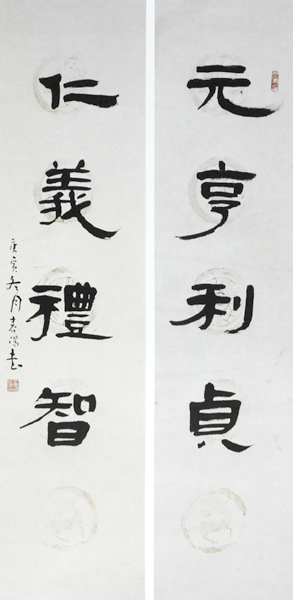 元亨利貞
仁義禮智
庚寅冬月書